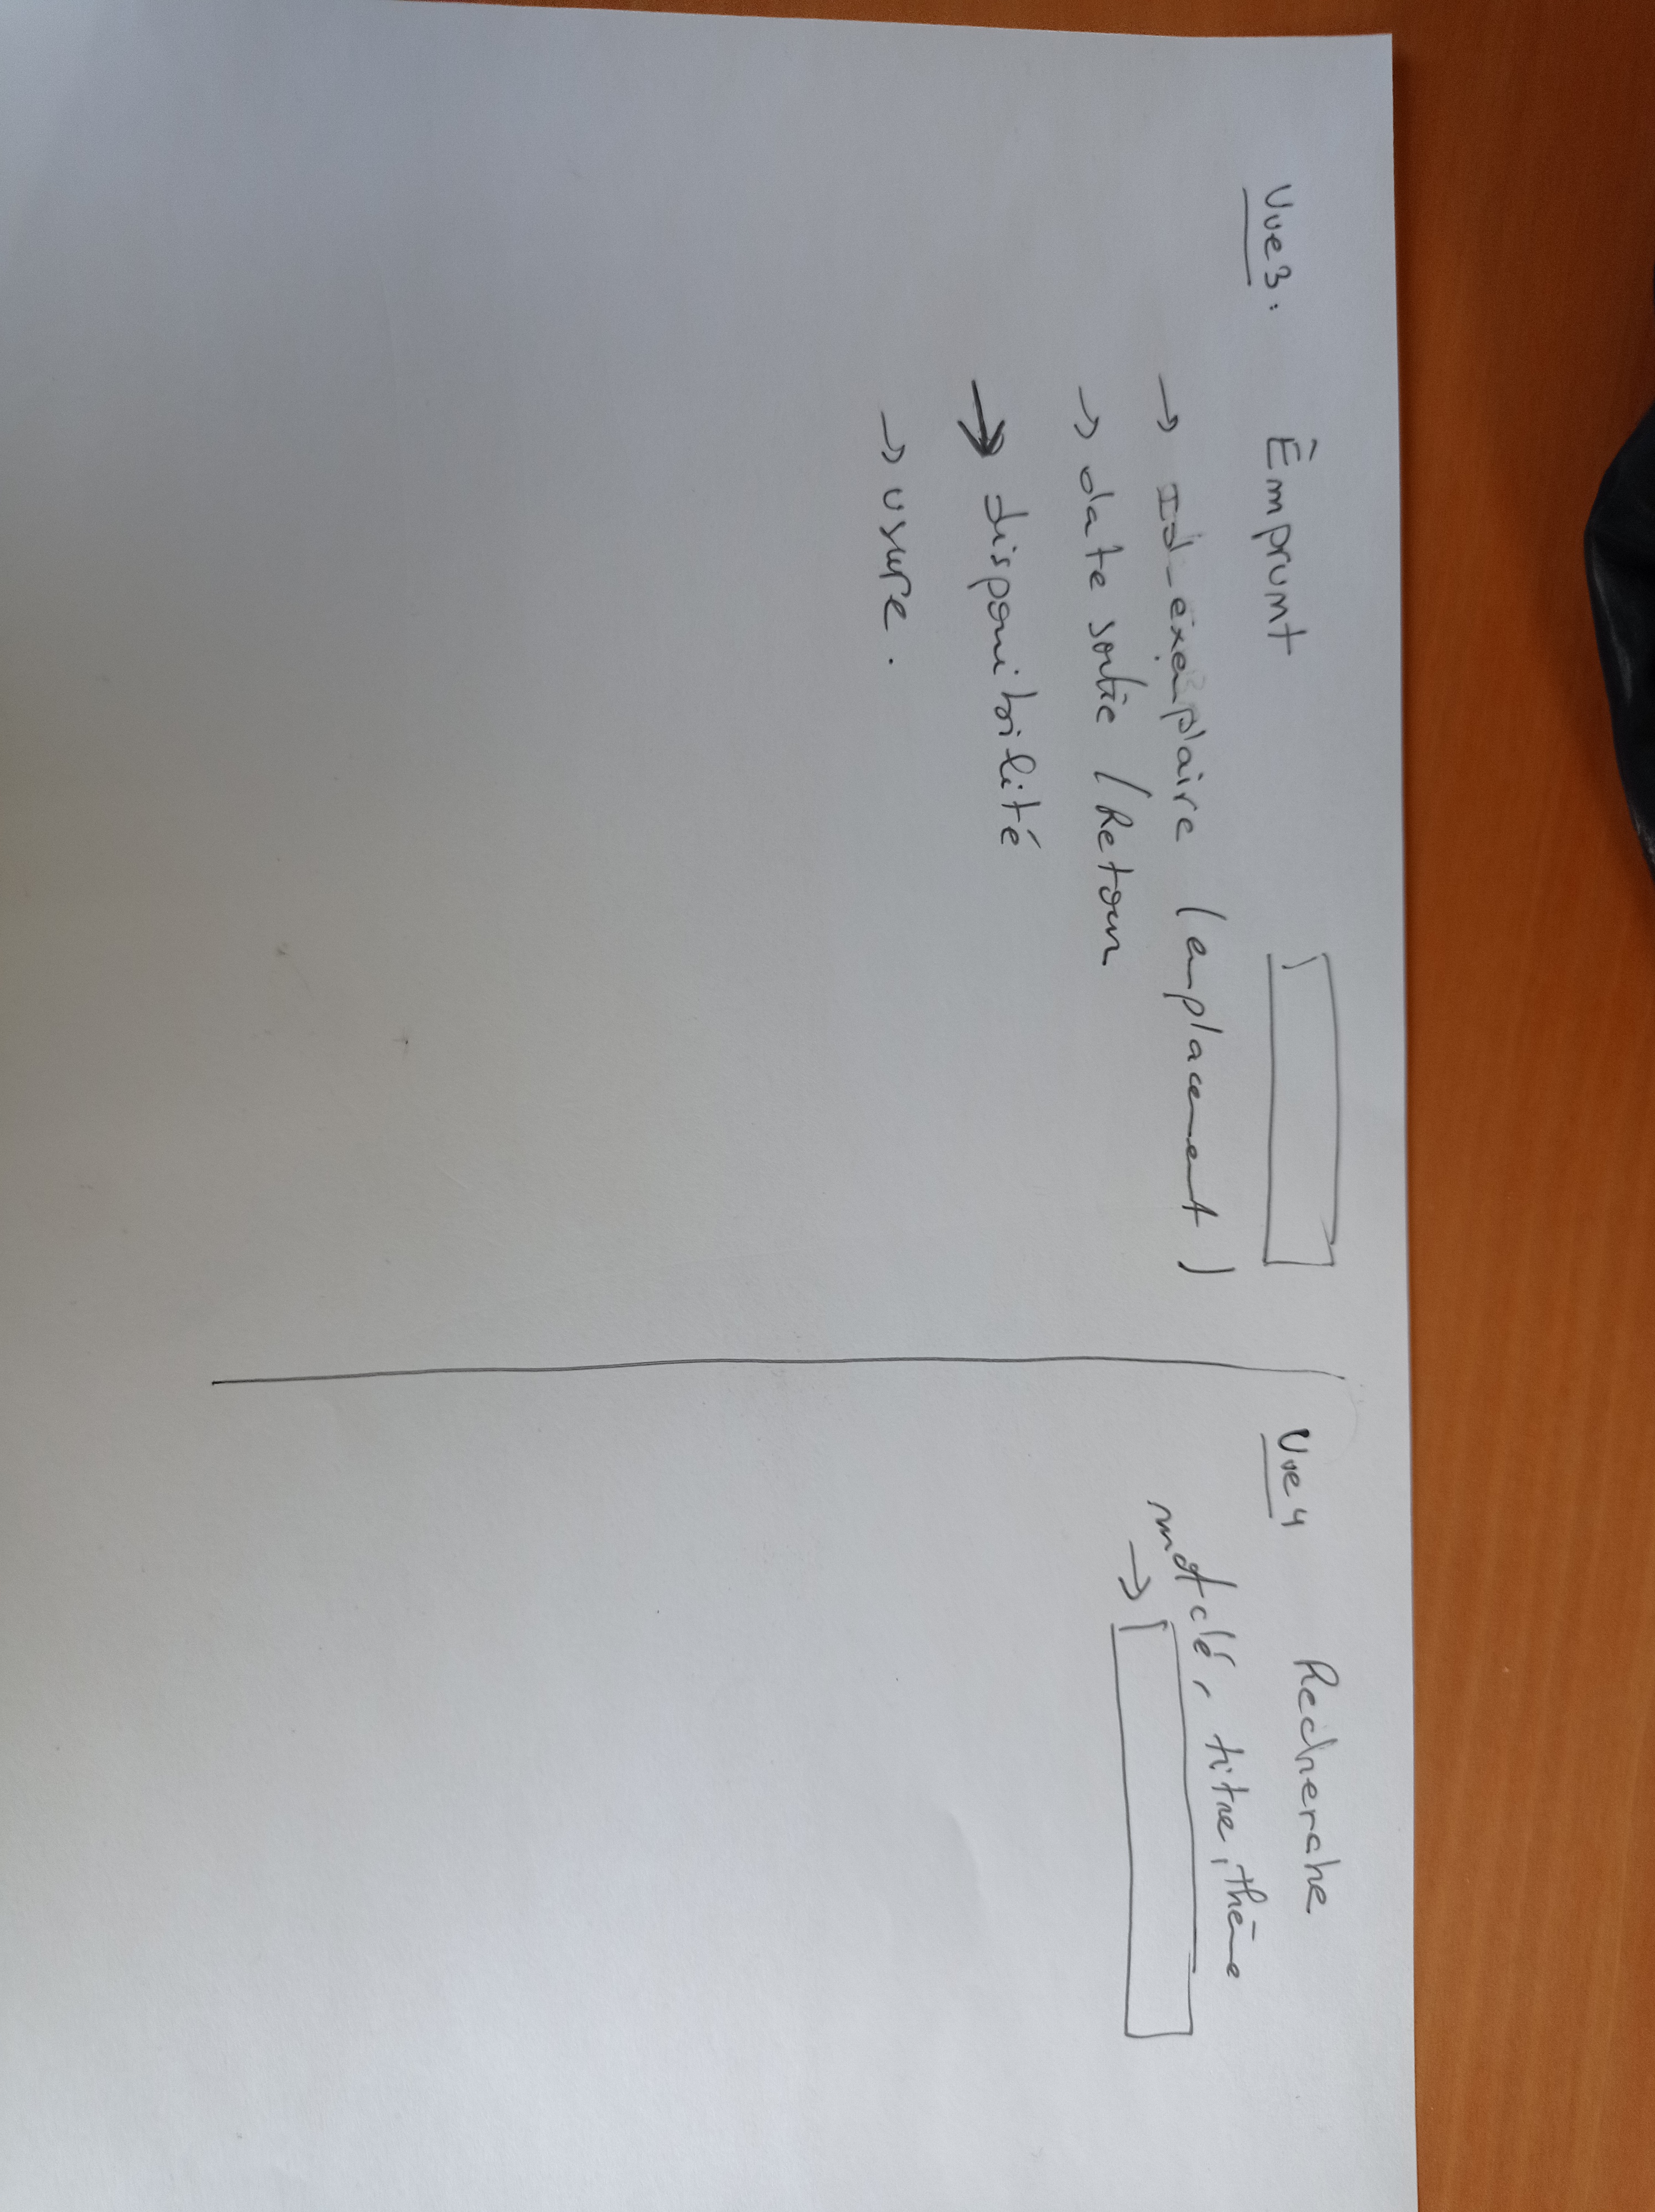 Vue 3 : Êmprumt
→ Id_exemplaire (emplacement)
→ date sortie / Retour
→ disponibilité
→ usure.
Vue 4 Recherche
mot clé, titre, thème
→